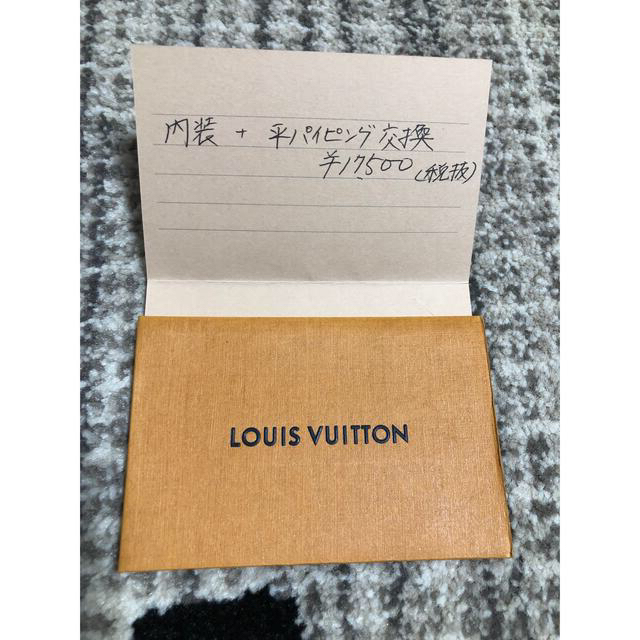 内装 + 平パイピング交換
¥17,500(税抜)
LOUIS VUITTON